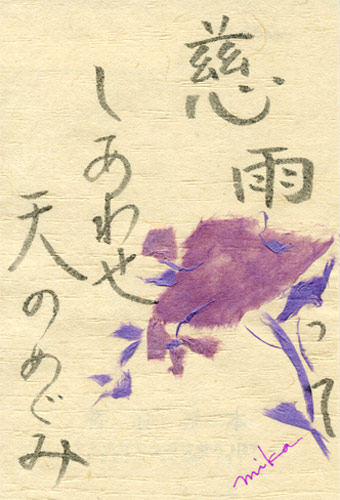 慈雨って
しあわせ
天のめぐみ
mika